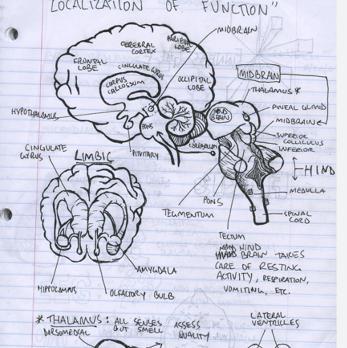 LOCALIZATION OF FUNCTION"
MIDBRAIN
PARIETAL LOBE
CEREBRAL CORTEX
FRONTAL LOBE
CINGULATE GYRUS
CORPUS CALLOSUM
OCCIPITAL LOBE
MIDBRAIN
THALAMUS*
PINEAL GLAND
MIDBRAIN
HYPOTHALAMUS
PONS
PITUITARY
CEREBELLUM
SUPERIOR
COLLICULUS
INFERIOR
CINGULATE
GYRUS
LIMBIC
HIND
MEDULLA
PONS
TEGMENTUM
SPINAL
CORD
TECTUM
HIND
BRAIN TAKES
CARE OF RESTING
ACTIVITY, RESPIRATION,
VOMITING, ETC.
AMYGDALA
HIPPOCAMPUS
OLFACTORY BULB
* THALAMUS: ALL SENSES
DORSOMEDIAL BUT SMELL
ASSESS
QUALITY
LATERAL
VENTRICLES